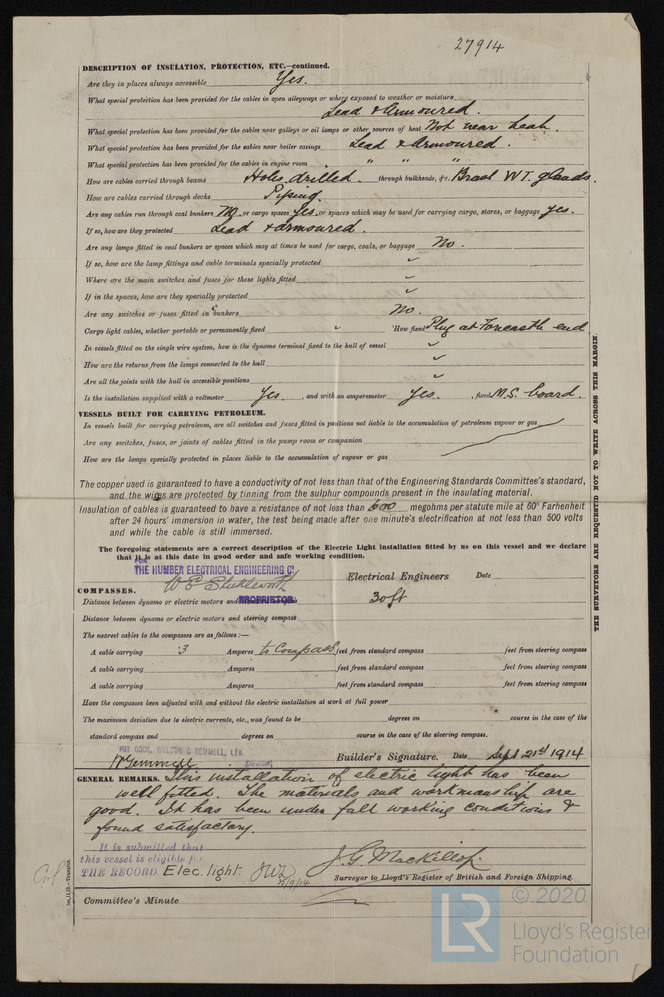 27914
DESCRIPTION OF INSULATION, PROTECTION, ETC.—continued.
Are they in places always accessible Yes.
What special protection has been provided for the cables in open alleyways or where exposed to weather or moisture
Lead & Armoured.
What special protection has been provided for the cables near galleys or oil lamps or other sources of heat Not near heat.
What special protection has been provided for the cables near boiler casings Lead & Armoured.
What special protection has been provided for the cables in engine room " " "
How are cables carried through beams Holes drilled. through bulkheads, &c. Brass W T. glands.
How are cables carried through decks Piping.
Are any cables run through coal bunkers No or cargo spaces Yes. or spaces which may be used for carrying cargo, stores, or baggage yes.
If so, how are they protected Lead & armoured.
Are any lamps fitted in coal bunkers or spaces which may at times be used for cargo, coals, or baggage No.
If so, how are the lamp fittings and cable terminals specially protected ✓
Where are the main switches and fuses for these lights fitted ✓
If in the spaces, how are they specially protected ✓
Are any switches or fuses fitted in bunkers No.
Cargo light cables, whether portable or permanently fixed " How fixed Plug at Forecastle end
In vessels fitted on the single wire system, how is the dynamo terminal fixed to the hull of vessel ✓
How are the returns from the lamps connected to the hull ✓
Are all the joints with the hull in accessible positions ✓
Is the installation supplied with a voltmeter Yes. , and with an amperemeter Yes. , fixed M.S. board.
VESSELS BUILT FOR CARRYING PETROLEUM.
In vessels built for carrying petroleum, are all switches and fuses fitted in positions not liable to the accumulation of petroleum vapour or gas
Are any switches, fuses, or joints of cables fitted in the pump room or companion
How are the lamps specially protected in places liable to the accumulation of vapour or gas
The copper used is guaranteed to have a conductivity of not less than that of the Engineering Standards Committee's standard,
and the wires are protected by tinning from the sulphur compounds present in the insulating material.
Insulation of cables is guaranteed to have a resistance of not less than 600 megohms per statute mile at 60° Farhenheit
after 24 hours' immersion in water, the test being made after one minute's electrification at not less than 500 volts
and while the cable is still immersed.
The foregoing statements are a correct description of the Electric Light installation fitted by us on this vessel and we declare
that it is at this date in good order and safe working condition.
FOR
THE HUMBER ELECTRICAL ENGINEERING Co.
Electrical Engineers Date
PROPRIETOR.
COMPASSES.
Distance between dynamo or electric motors and 30 ft
Distance between dynamo or electric motors and steering compass
The nearest cables to the compasses are as follows:—
A cable carrying 3 Amperes to Compass feet from standard compass feet from steering compass
A cable carrying Amperes feet from standard compass feet from steering compass
A cable carrying Amperes feet from standard compass feet from steering compass
Have the compasses been adjusted with and without the electric installation at work at full power
The maximum deviation due to electric currents, etc., was found to be degrees on course in the case of the
standard compass and degrees on course in the case of the steering compass.
FOR COOK, WELTON & GEMMELL, LTD.
W Gemmell Director
Builder's Signature. Date Sept 21st 1914
GENERAL REMARKS. This installation of electric light has been
well fitted. The materials and workmanship are
good. It has been under full working conditions &
found satisfactory.
It is submitted that
this vessel is eligible for
THE RECORD Elec. light.
J. G. Mackillop.
Surveyor to Lloyd's Register of British and Foreign Shipping.
Committee's Minute
THE SURVEYORS ARE REQUESTED NOT TO WRITE ACROSS THIS MARGIN.
© 2020
LR
Lloyd's Register
Foundation